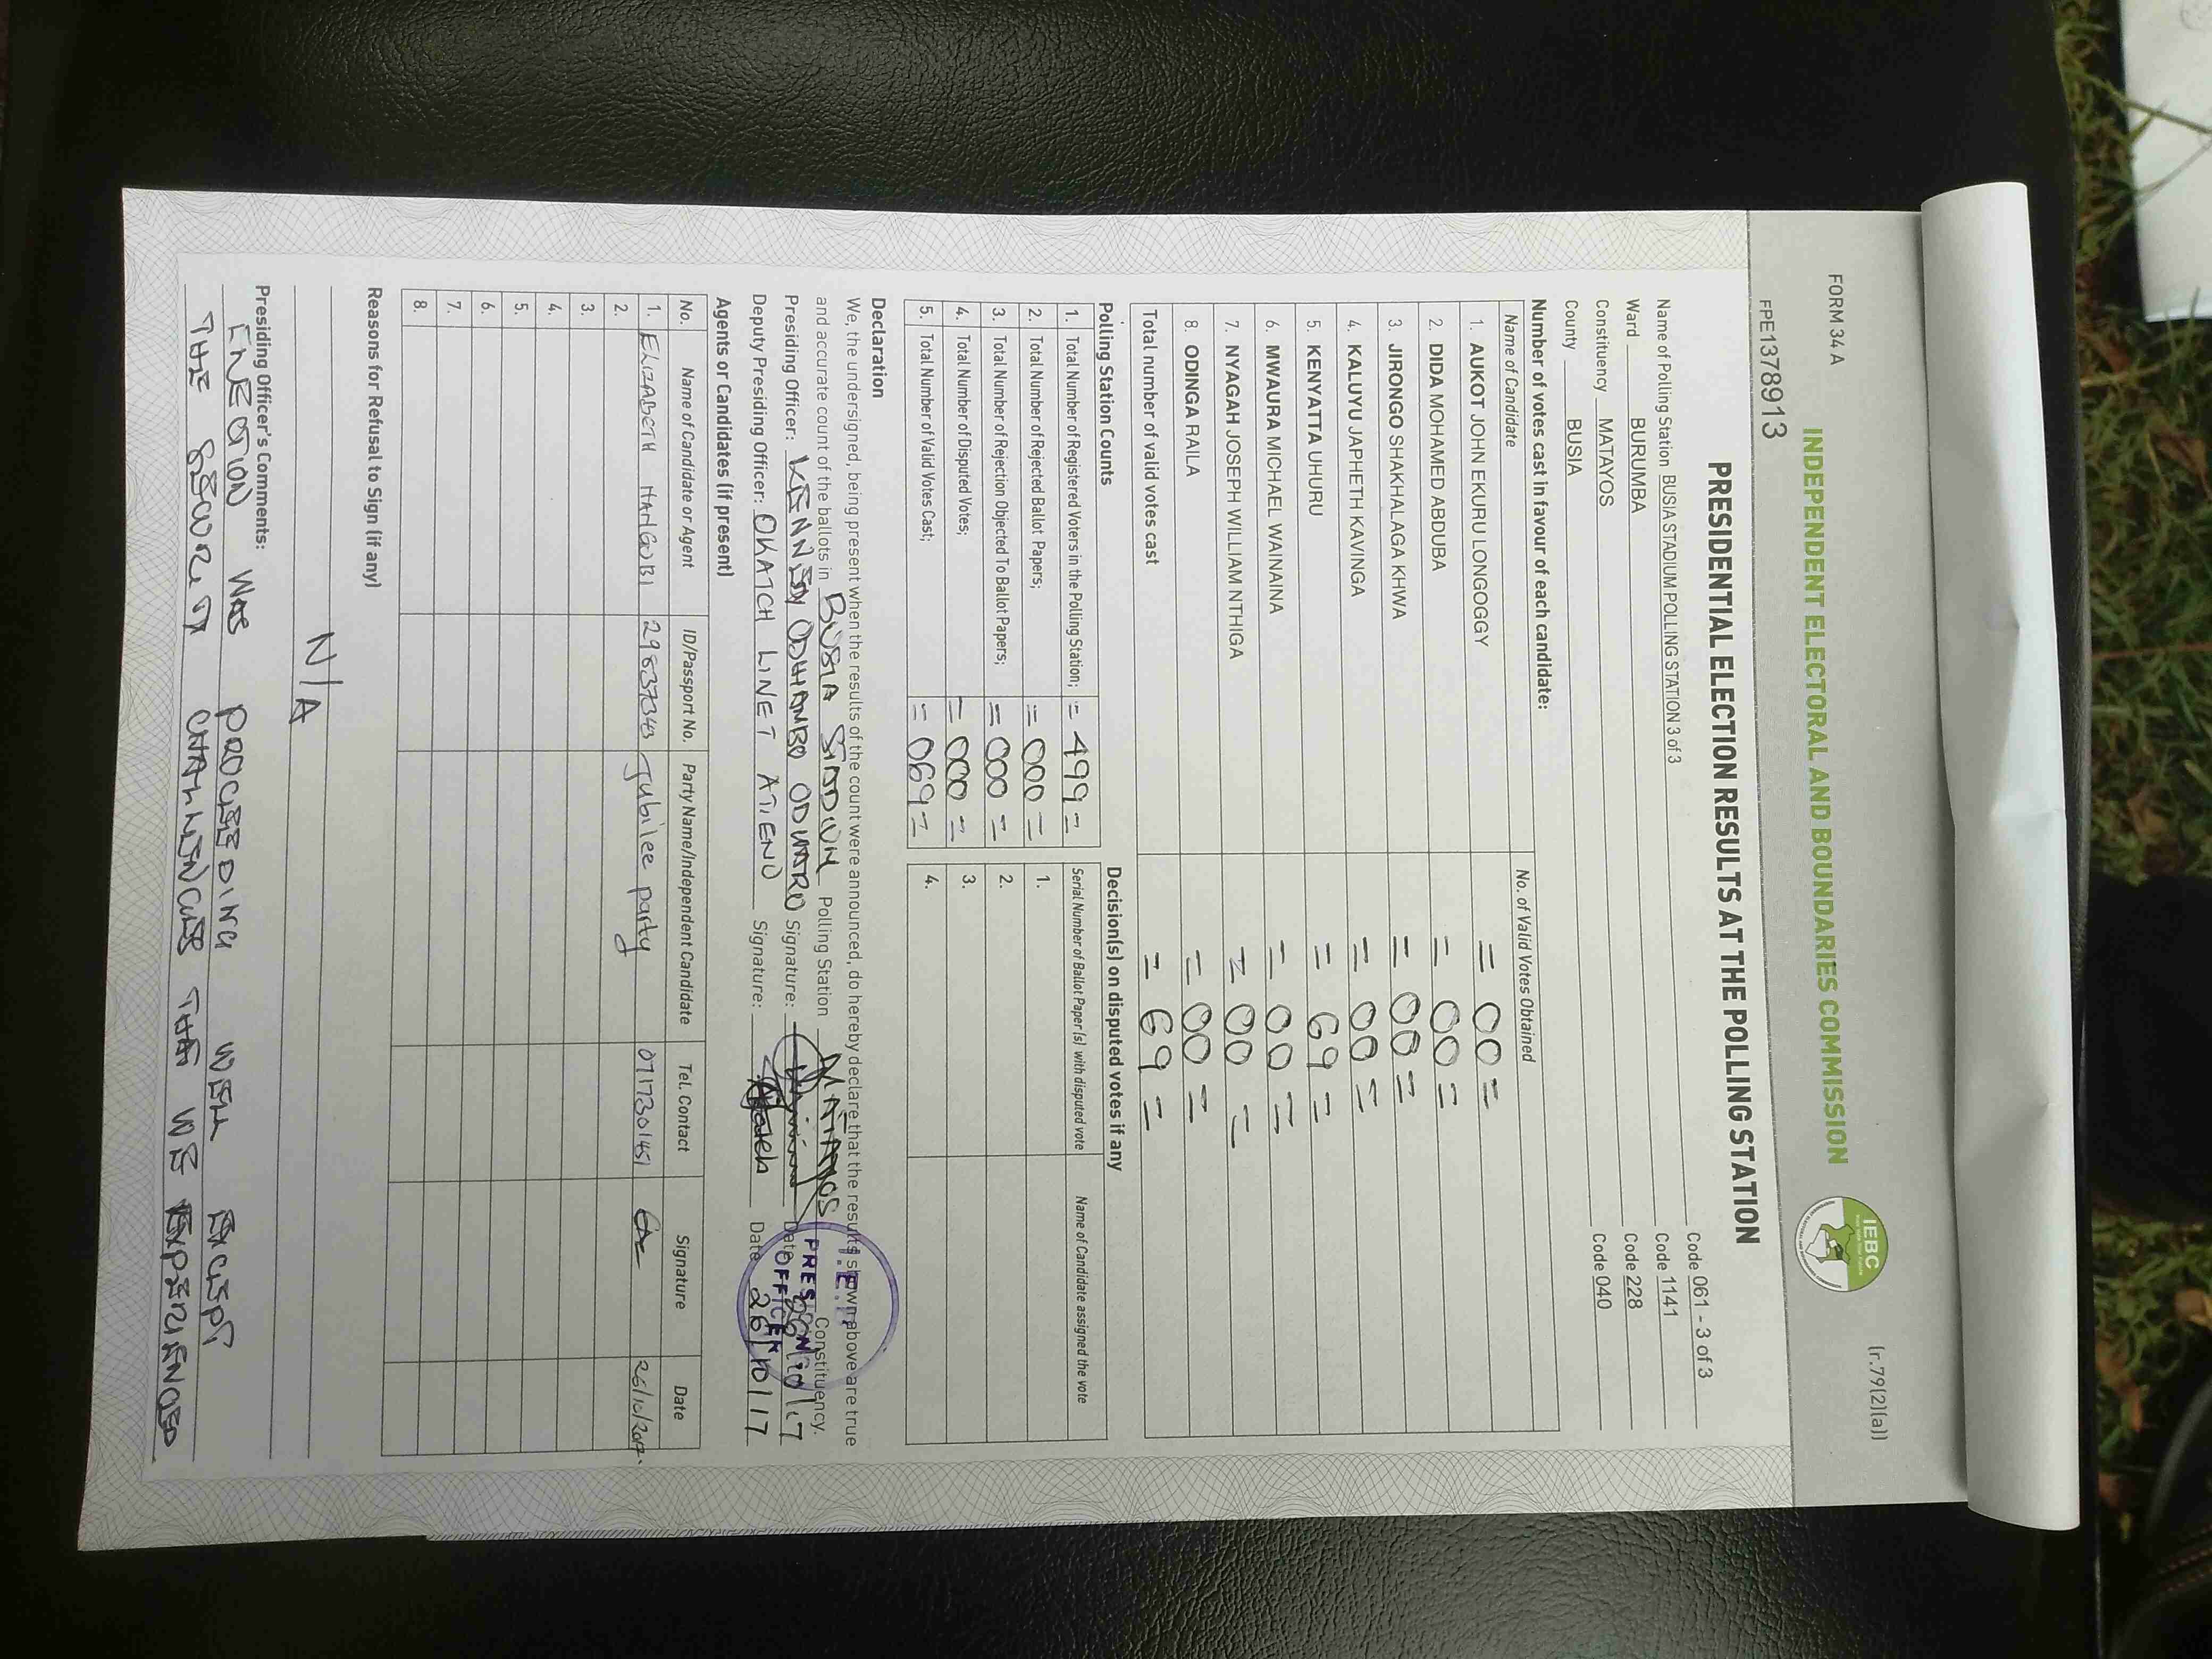 FORM 34 A
(r.79(2)(a))
INDEPENDENT ELECTORAL AND BOUNDARIES COMMISSION
IEBC
FPE1378913
PRESIDENTIAL ELECTION RESULTS AT THE POLLING STATION
Name of Polling Station BUSIA STADIUM POLLING STATION 3 of 3 Code 061 - 3 of 3
Ward BURUMBA Code 1141
Constituency MATAYOS Code 228
County BUSIA Code 040
Number of votes cast in favour of each candidate:
Name of Candidate No. of Valid Votes Obtained
1. AUKOT JOHN EKURU LONGOGGY = 00 =
2. DIDA MOHAMED ABDUBA = 00 =
3. JIRONGO SHAKHALAGA KHWA = 00 =
4. KALUYU JAPHETH KAVINGA = 00 =
5. KENYATTA UHURU = 69 =
6. MWAURA MICHAEL WAINAINA = 00 =
7. NYAGAH JOSEPH WILLIAM NTHIGA = 00 =
8. ODINGA RAILA = 00 =
Total number of valid votes cast = 69 =
Polling Station Counts
1. Total Number of Registered Voters in the Polling Station; = 499 =
2. Total Number of Rejected Ballot Papers; = 000 =
3. Total Number of Rejection Objected To Ballot Papers; = 000 =
4. Total Number of Disputed Votes; = 000 =
5. Total Number of Valid Votes Cast; = 069 =
Decision(s) on disputed votes if any
Serial Number of Ballot Paper(s) with disputed vote Name of Candidate assigned the vote
1.
2.
3.
4.
Declaration
We, the undersigned, being present when the results of the count were announced, do hereby declare that the results shown above are true
and accurate count of the ballots in BUSIA STADIUM Polling Station MATAYOS Constituency.
Presiding Officer: KENNEDY ODHIAMBO ODUARO Signature: Date
Deputy Presiding Officer: OKATCH LINET ATIENO Signature: Date 26/10/17
PRESIDING
OFFICER
Agents or Candidates (if present)
No. Name of Candidate or Agent ID/Passport No. Party Name/Independent Candidate Tel. Contact Signature Date
1. ELIZABETH 29837343 Jubilee party 0717301451 26/10/2017.
2.
3.
4.
5.
6.
7.
8.
Reasons for Refusal to Sign (if any)
N/A
Presiding Officer's Comments:
ENECTION WAS PROCEEDING WELL EXCEPT
THE SECURITY CHALLENGES THAT WE EXPERIENCED